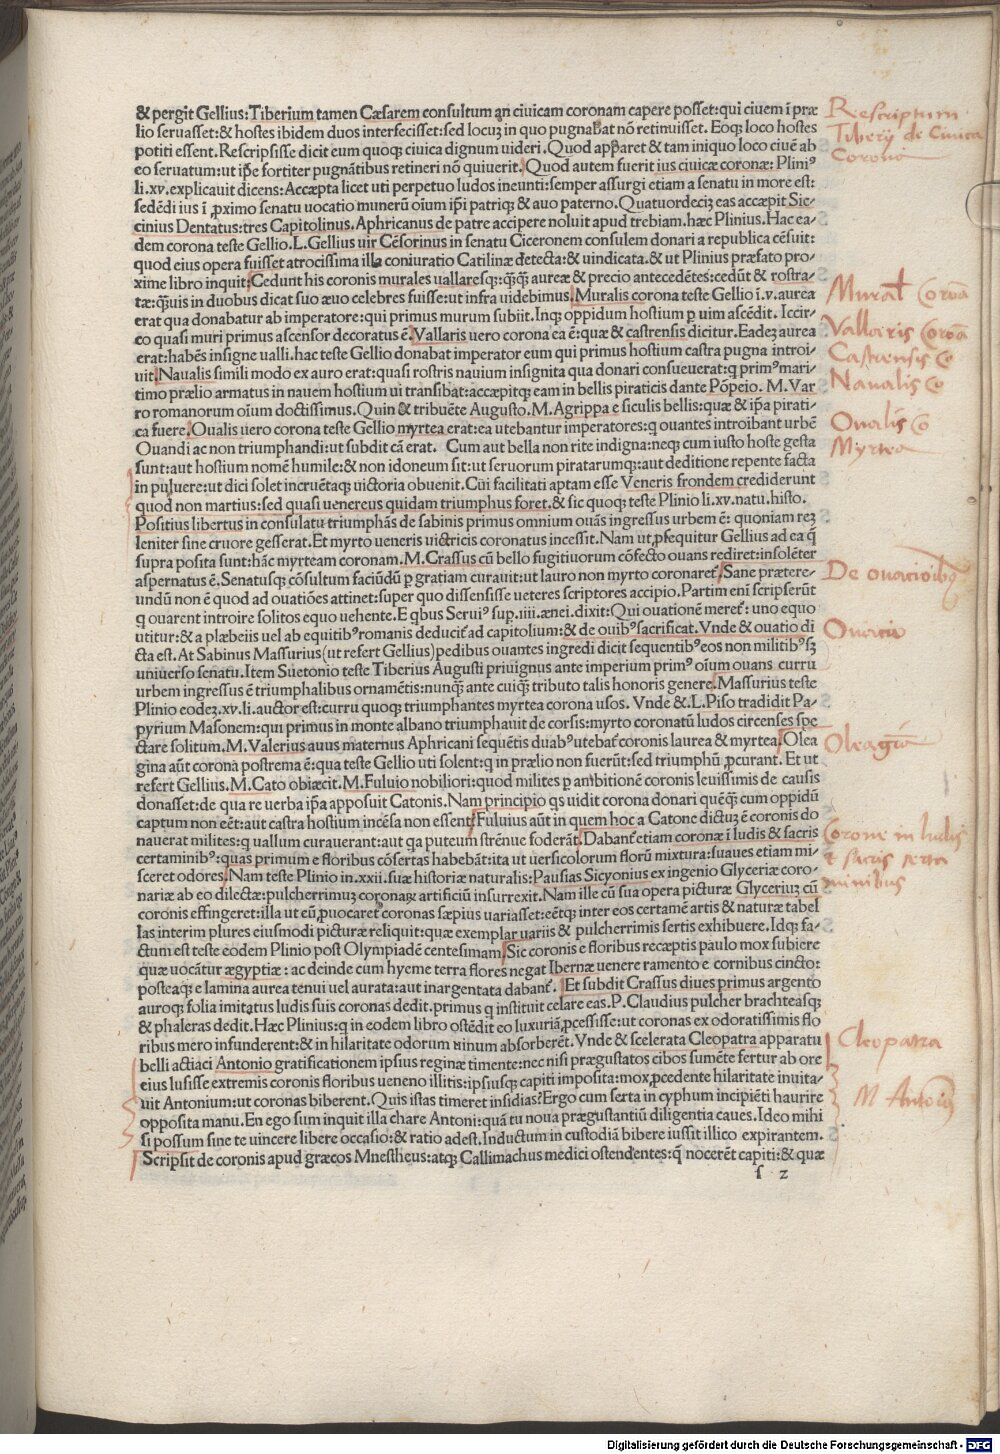 & pergit Gellius: Tiberium tamen Cæsarem consultum an ciuicam coronam capere posset: qui ciuem ī præ
lio seruasset: & hostes ibidem duos interfecisset: sed locuꝫ in quo pugnabat nō retinuisset. Eoqꝫ loco hostes
potiti essent. Rescripsisse dicit eum quoqꝫ ciuica dignum uideri. Quod apparet & tam iniquo loco ciuē ab
eo seruatum: ut ip̄e fortiter pugnātibus retineri nō quiuerit. Quod autem fuerit ius ciuicæ coronæ: Pliniꝰ
li. xv. explicauit dicens: Accæpta licet uti perpetuo ludos ineunti: semper assurgi etiam a senatu in more est:
sedēdi ius ī ꝓximo senatu uocatio munerū oīum ip̄i patriqꝫ & auo paterno. Quatuordeciꝫ eas accæpit Sic-
cinius Dentatus: tres Capitolinus. Aphricanus de patre accipere noluit apud trebiam. hæc Plinius. Hac ea-
dem corona teste Gellio. L. Gellius uir Cēsorinus in senatu Ciceronem consulem donari a republica cēsuit:
quod eius opera fuisset atrocissima illa coniuratio Catilinæ detecta: & uindicata. & ut Plinius præfato pro-
xime libro inquit: Cedunt his coronis murales uallaresqꝫ: qꝫqꝫ aureæ & precio antecedētes: cedūt & rostra-
tæ: qꝫuis in duobus dicat suo æuo celebres fuisse: ut infra uidebimus. Muralis corona teste Gellio ī. v. aurea
erat qua donabatur ab imperatore: qui primus murum subiit. Inqꝫ oppidum hostium p uim ascēdit. Iccir-
co quasi muri primus ascensor decoratus ē. Vallaris uero corona ea ē: quæ & castrensis dicitur. Eadeꝫ aurea
erat: habēs insigne ualli. hac teste Gellio donabat imperator eum qui primus hostium castra pugna introi-
uit. Naualis simili modo ex auro erat: quasi rostris nauium insignita qua donari consueuerat: q primꝰ mari-
timo prælio armatus in nauem hostium ui transibat: accæpitqꝫ eam in bellis piraticis dante Pōpeio. M. Var
ro romanorum oīum doctissimus. Quin & tribuēte Augusto. M. Agrippa e siculis bellis: quæ & ip̄a pirati-
ca fuere. Oualis uero corona teste Gellio myrtea erat: ea utebantur imperatores: q ouantes introibant urbē
Ouandi ac non triumphandi: ut subdit cā erat. Cum aut bella non rite indigna: neqꝫ cum iusto hoste gesta
sunt: aut hostium nomē humile: & non idoneum sit: ut seruorum piratarumqꝫ: aut deditione repente facta
in puluere: ut dici solet incruētaqꝫ uictoria obuenit. Cui facilitati aptam esse Veneris frondem crediderunt
quod non martius: sed quasi uenereus quidam triumphus foret. & sic quoqꝫ teste Plinio li. xv. natu. histo.
Positius libertus in consulatu triumphās de sabinis primus omnium ouās ingressus urbem ē: quoniam reꝫ
leniter sine cruore gesserat. Et myrto ueneris uictricis coronatus incessit. Nam ut ꝓsequitur Gellius ad ea q̄
supra posita sunt: hāc myrteam coronam. M. Crassus cū bello fugitiuorum cōfecto ouans rediret: insolēter
aspernatus ē. Senatusqꝫ cōsultum faciūdū p gratiam curauit: ut lauro non myrto coronaret. Sane prætere-
undū non ē quod ad ouatiōes attinet: super quo dissensisse ueteres scriptores accipio. Partim enī scripserūt
q ouarent introire solitos equo uehente. E qbus Seruiꝰ sup. iiii. ænei. dixit: Qui ouationē meret: uno equo
utitur: & a plæbeiis uel ab equitibꝰ romanis deducit ad capitolium: & de ouibꝰ sacrificat. Vnde & ouatio di
cta est. At Sabinus Massurius (ut refert Gellius) pedibus ouantes ingredi dicit sequentibꝰ eos non militibꝰ sꝫ
uniuerso senatu. Item Suetonio teste Tiberius Augusti priuignus ante imperium primꝰ oīum ouans curru
urbem ingressus ē triumphalibus ornamētis: nunqꝫ ante cuiqꝫ tributo talis honoris genere. Massurius teste
Plinio eodeꝫ. xv. li. auctor est: curru quoqꝫ triumphantes myrtea corona usos. Vnde &. L. Piso tradidit Pa-
pyrium Masonem: qui primus in monte albano triumphauit de corsis: myrto coronatū ludos circenses spe
ctare solitum. M. Valerius auus maternus Aphricani sequētis duabꝰ utebat coronis laurea & myrtea. Olea
gina aūt corona postrema ē: qua teste Gellio uti solent: q in prælio non fuerūt: sed triumphū ꝓcurant. Et ut
refert Gellius. M. Cato obiæcit. M. Fuluio nobiliori: quod milites p ambitionē coronis leuissimis de causis
donasset: de qua re uerba ip̄a apposuit Catonis. Nam principio qs uidit corona donari quēqꝫ cum oppidū
captum non eēt: aut castra hostium incēsa non essent. Fuluius aūt in quem hoc a Catone dictuꝫ ē coronis do
nauerat milites: q uallum curauerant: aut qa puteum strēnue foderāt. Dabant etiam coronæ ī ludis & sacris
certaminibꝰ: quas primum e floribus cōsertas habebāt: ita ut uersicolorum florū mixtura: suaues etiam mi-
sceret odores. Nam teste Plinio in. xxii. suæ historiæ naturalis: Pausias Sicyonius ex ingenio Glyceriæ coro-
nariæ ab eo dilectæ: pulcherrimuꝫ coronaꝝ artificiū insurrexit. Nam ille cū sua opera picturæ Glyceriuꝫ cū
coronis effingeret: illa ut eū ꝓuocaret coronas sæpius uariasset: eētqꝫ inter eos certamē artis & naturæ tabel
las interim plures eiusmodi picturæ reliquit: quæ exemplar uariis & pulcherrimis sertis exhibuere. Idqꝫ fa-
ctum est teste eodem Plinio post Olympiadē centesimam. Sic coronis e floribus recæptis paulo mox subiere
quæ uocātur ægyptiæ: ac deinde cum hyeme terra flores negat Ibernæ uenere ramento e cornibus cincto:
posteaqꝫ e lamina aurea tenui uel aurata: aut inargentata dabant. Et subdit Crassus diues primus argento
auroqꝫ folia imitatus ludis suis coronas dedit. primus q instituit celare eas. P. Claudius pulcher brachteasqꝫ
& phaleras dedit. Hæc Plinius: q in eodem libro ostēdit eo luxuriā ꝓcessisse: ut coronas ex odoratissimis flo
ribus mero infunderent: & in hilaritate odorum uinum absorberēt. Vnde & scelerata Cleopatra apparatu
belli actiaci Antonio gratificationem ipsius reginæ timente: nec nisi prægustatos cibos sumēte fertur ab ore
eius lusisse extremis coronis floribus ueneno illitis: ipsiusqꝫ capiti imposita: mox ꝓcedente hilaritate inuita-
uit Antonium: ut coronas biberent. Quis istas timeret insidias? Ergo cum serta in cyphum incipiēti haurire
opposita manu. En ego sum inquit illa chare Antoni: quā tu noua prægustantiū diligentia caues. Ideo mihi
si possum sine te uincere libere occasio: & ratio adest. Inductum in custodiā bibere iussit illico expirantem.
Scripsit de coronis apud græcos Mnestheus: atqꝫ Callimachus medici ostendentes: q̄ nocerēt capiti: & quæ
f 2
Rescriptum
Tiberij de Ciuica
Corona
Mural Corona
Vallaris Corona
Castrensis Co
Naualis Co
Oualis Co
Myrtea
De ouacioibꝫ
Ouatio
Oleagīa
Corone in ludis
& sacris certa
minibus
Cleopatra
M Antoniꝰ
Digitalisierung gefördert durch die Deutsche Forschungsgemeinschaft - DFG